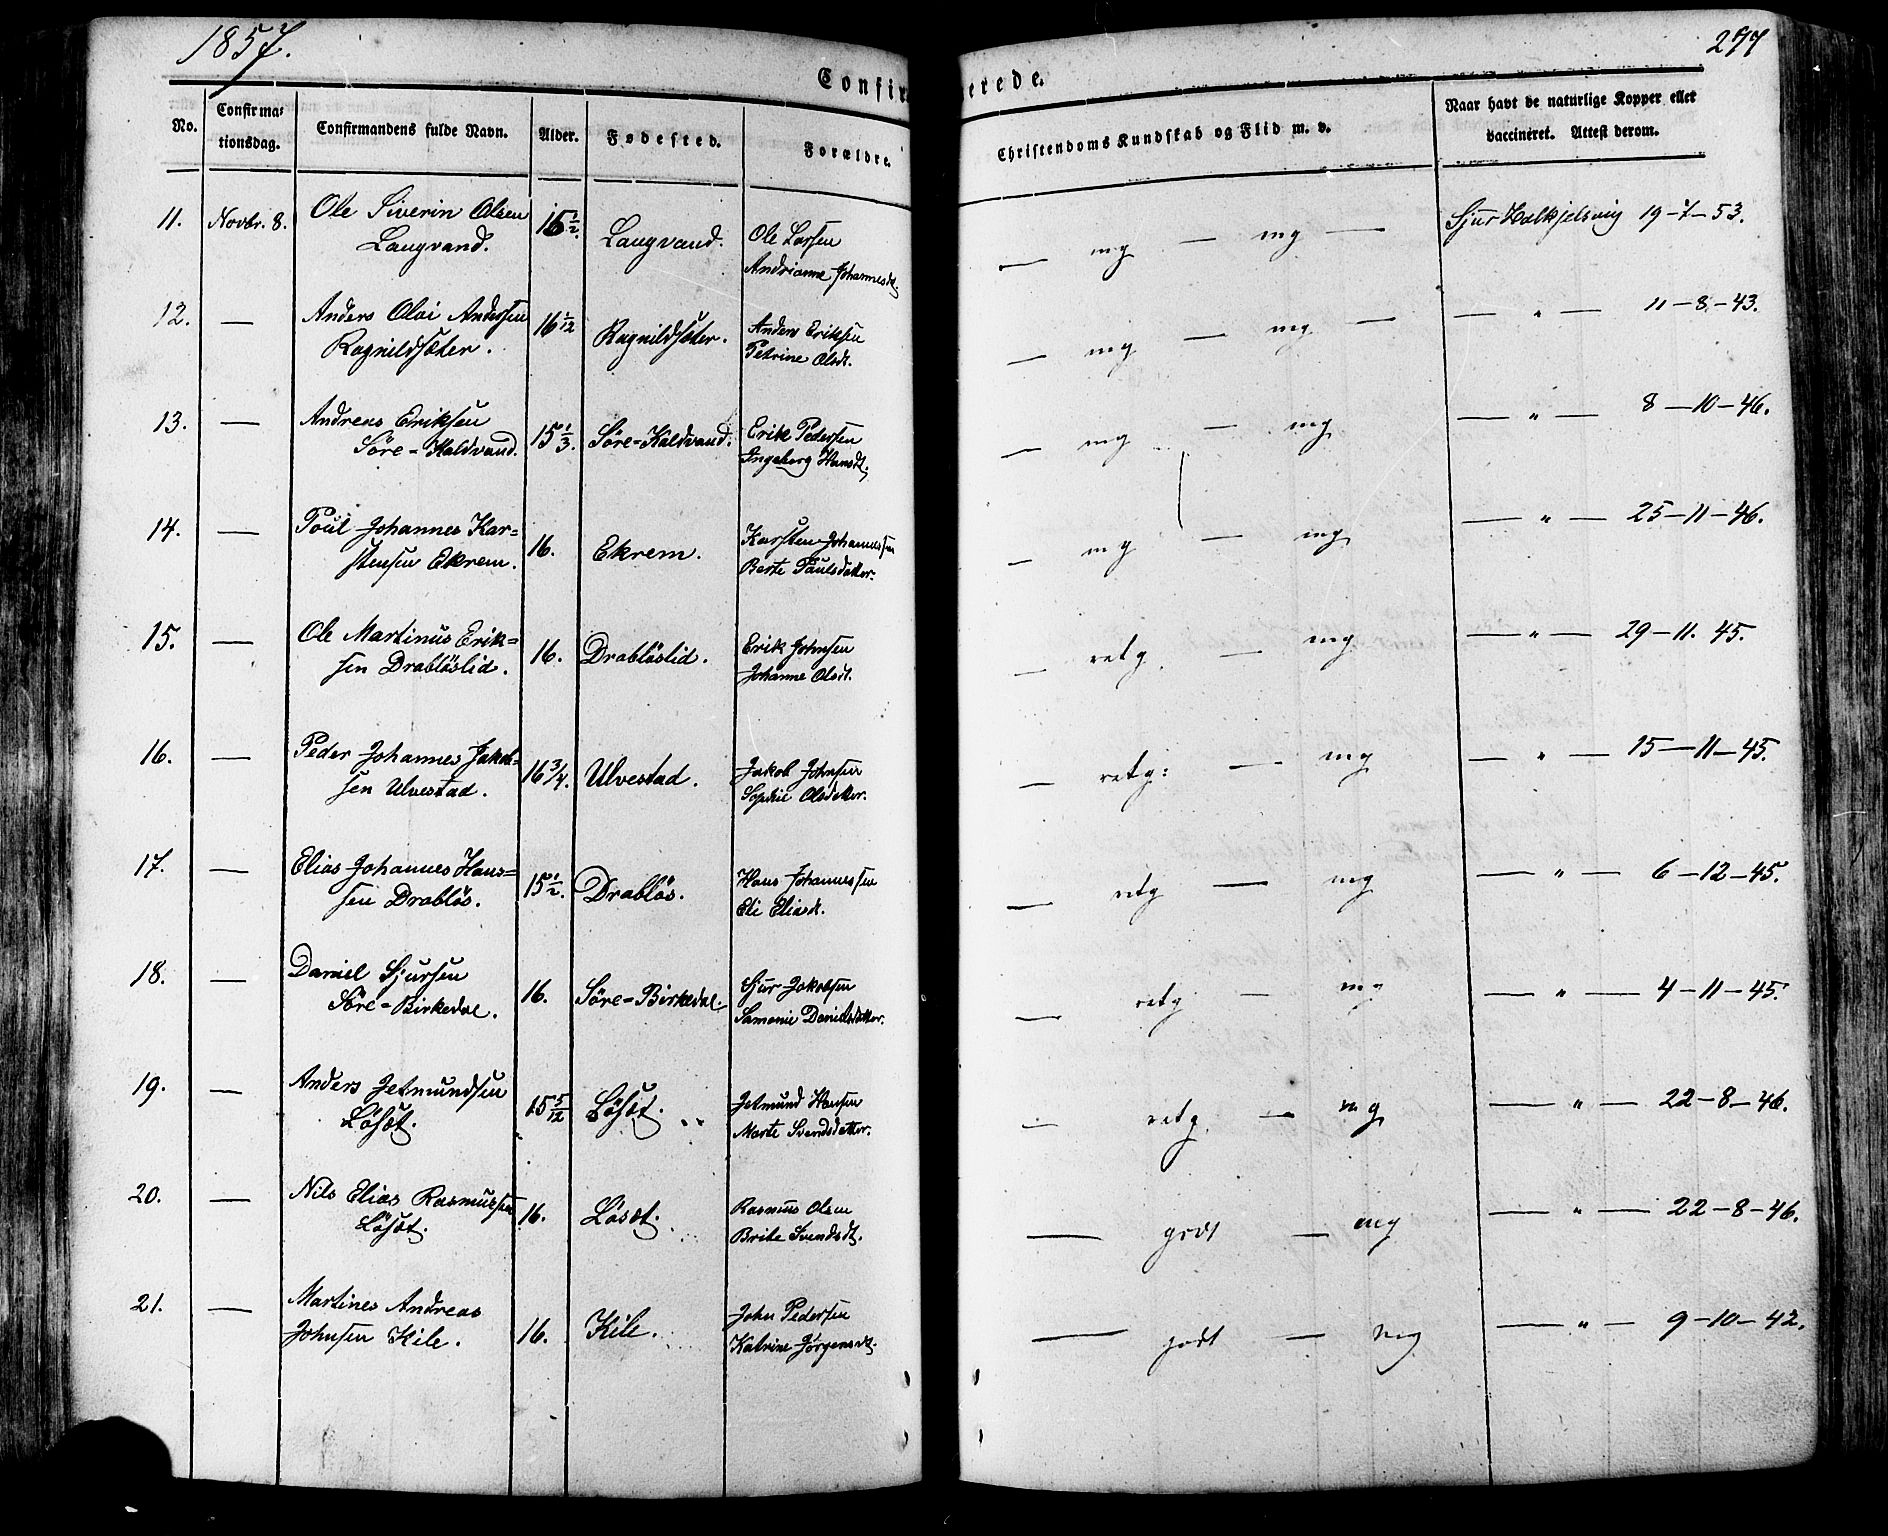 1857.
277
Confirmerede.
No. Confirmationsdag. Confirmandens fulde Navn. Alder. Fødested. Forældre. Christendoms Kundskab og Flid m. v. Naar havt de naturlige Kopper eller vaccineret. Attest derom.
11. Novbr. 8. Ole Siverin Olsen 16 1/2. Langvand. Ole Larsen — mg — mg — Sjur Halkjelsvig 19-7-53.
Langvand. Andrianne Johannesdt.
12. — Anders Oloi Andersen 16 1/12 Ragnildsæter. Anders Eriksen — mg — mg — — " — 11-8-43.
Ragnildsæter. Petrine Olsdt.
13. — Andreas Eriksen 15 1/3. Søre-Kaldvand. Erik Pedersen — mg — mg — " — 8-10-46.
Søre-Kaldvand. Ingeborg Hansdt.
14. — Poul Johannes Kar= 16. Ekrem. Karsten Johannessen — mg — mg — " — 25-11-46.
stensen Ekrem. Berte Paulsdatter.
15. — Ole Martinus Erik= 16. Drabløslid. Erik Johnsen — retg — mg — " — 29-11. 45.
sen Drabløslid. Johanne Olsdt.
16. — Peder Johannes Jakob= 16 3/4. Ulvestad. Jakob Johnsen — retg: — mg — " — 15-11-45.
sen Ulvestad. Sophie Olsdatter.
17. — Elias Johannes Hans= 15 1/2. Drabløs. Hans Johannessen — retg — mg — " — 6-12-45.
sen Drabløs. Eli Eliasdt.
18. — Daniel Sjursen 16. Søre-Birkedal. Sjur Jakobsen — retg — mg — " — 4-11-45.
Søre-Birkedal. Samonie Danielsdatter.
19. — Anders Jetmundsen 15 5/12 Løsæt. Jetmund Hansen — retg. — mg — " — 22-8-46.
Løsæt. Marte Svendsdatter.
20. — Nils Elias Rasmussen 16. Løsæt. Rasmus Olsen — godt — mg — " — 22-8-46.
Løsæt. Brite Svendsdt.
21. — Martines Andreas 16. Kile. John Pedersen — godt — mg — " — 9-10-42.
Johnsen Kile. Katrine Jørgensdt.